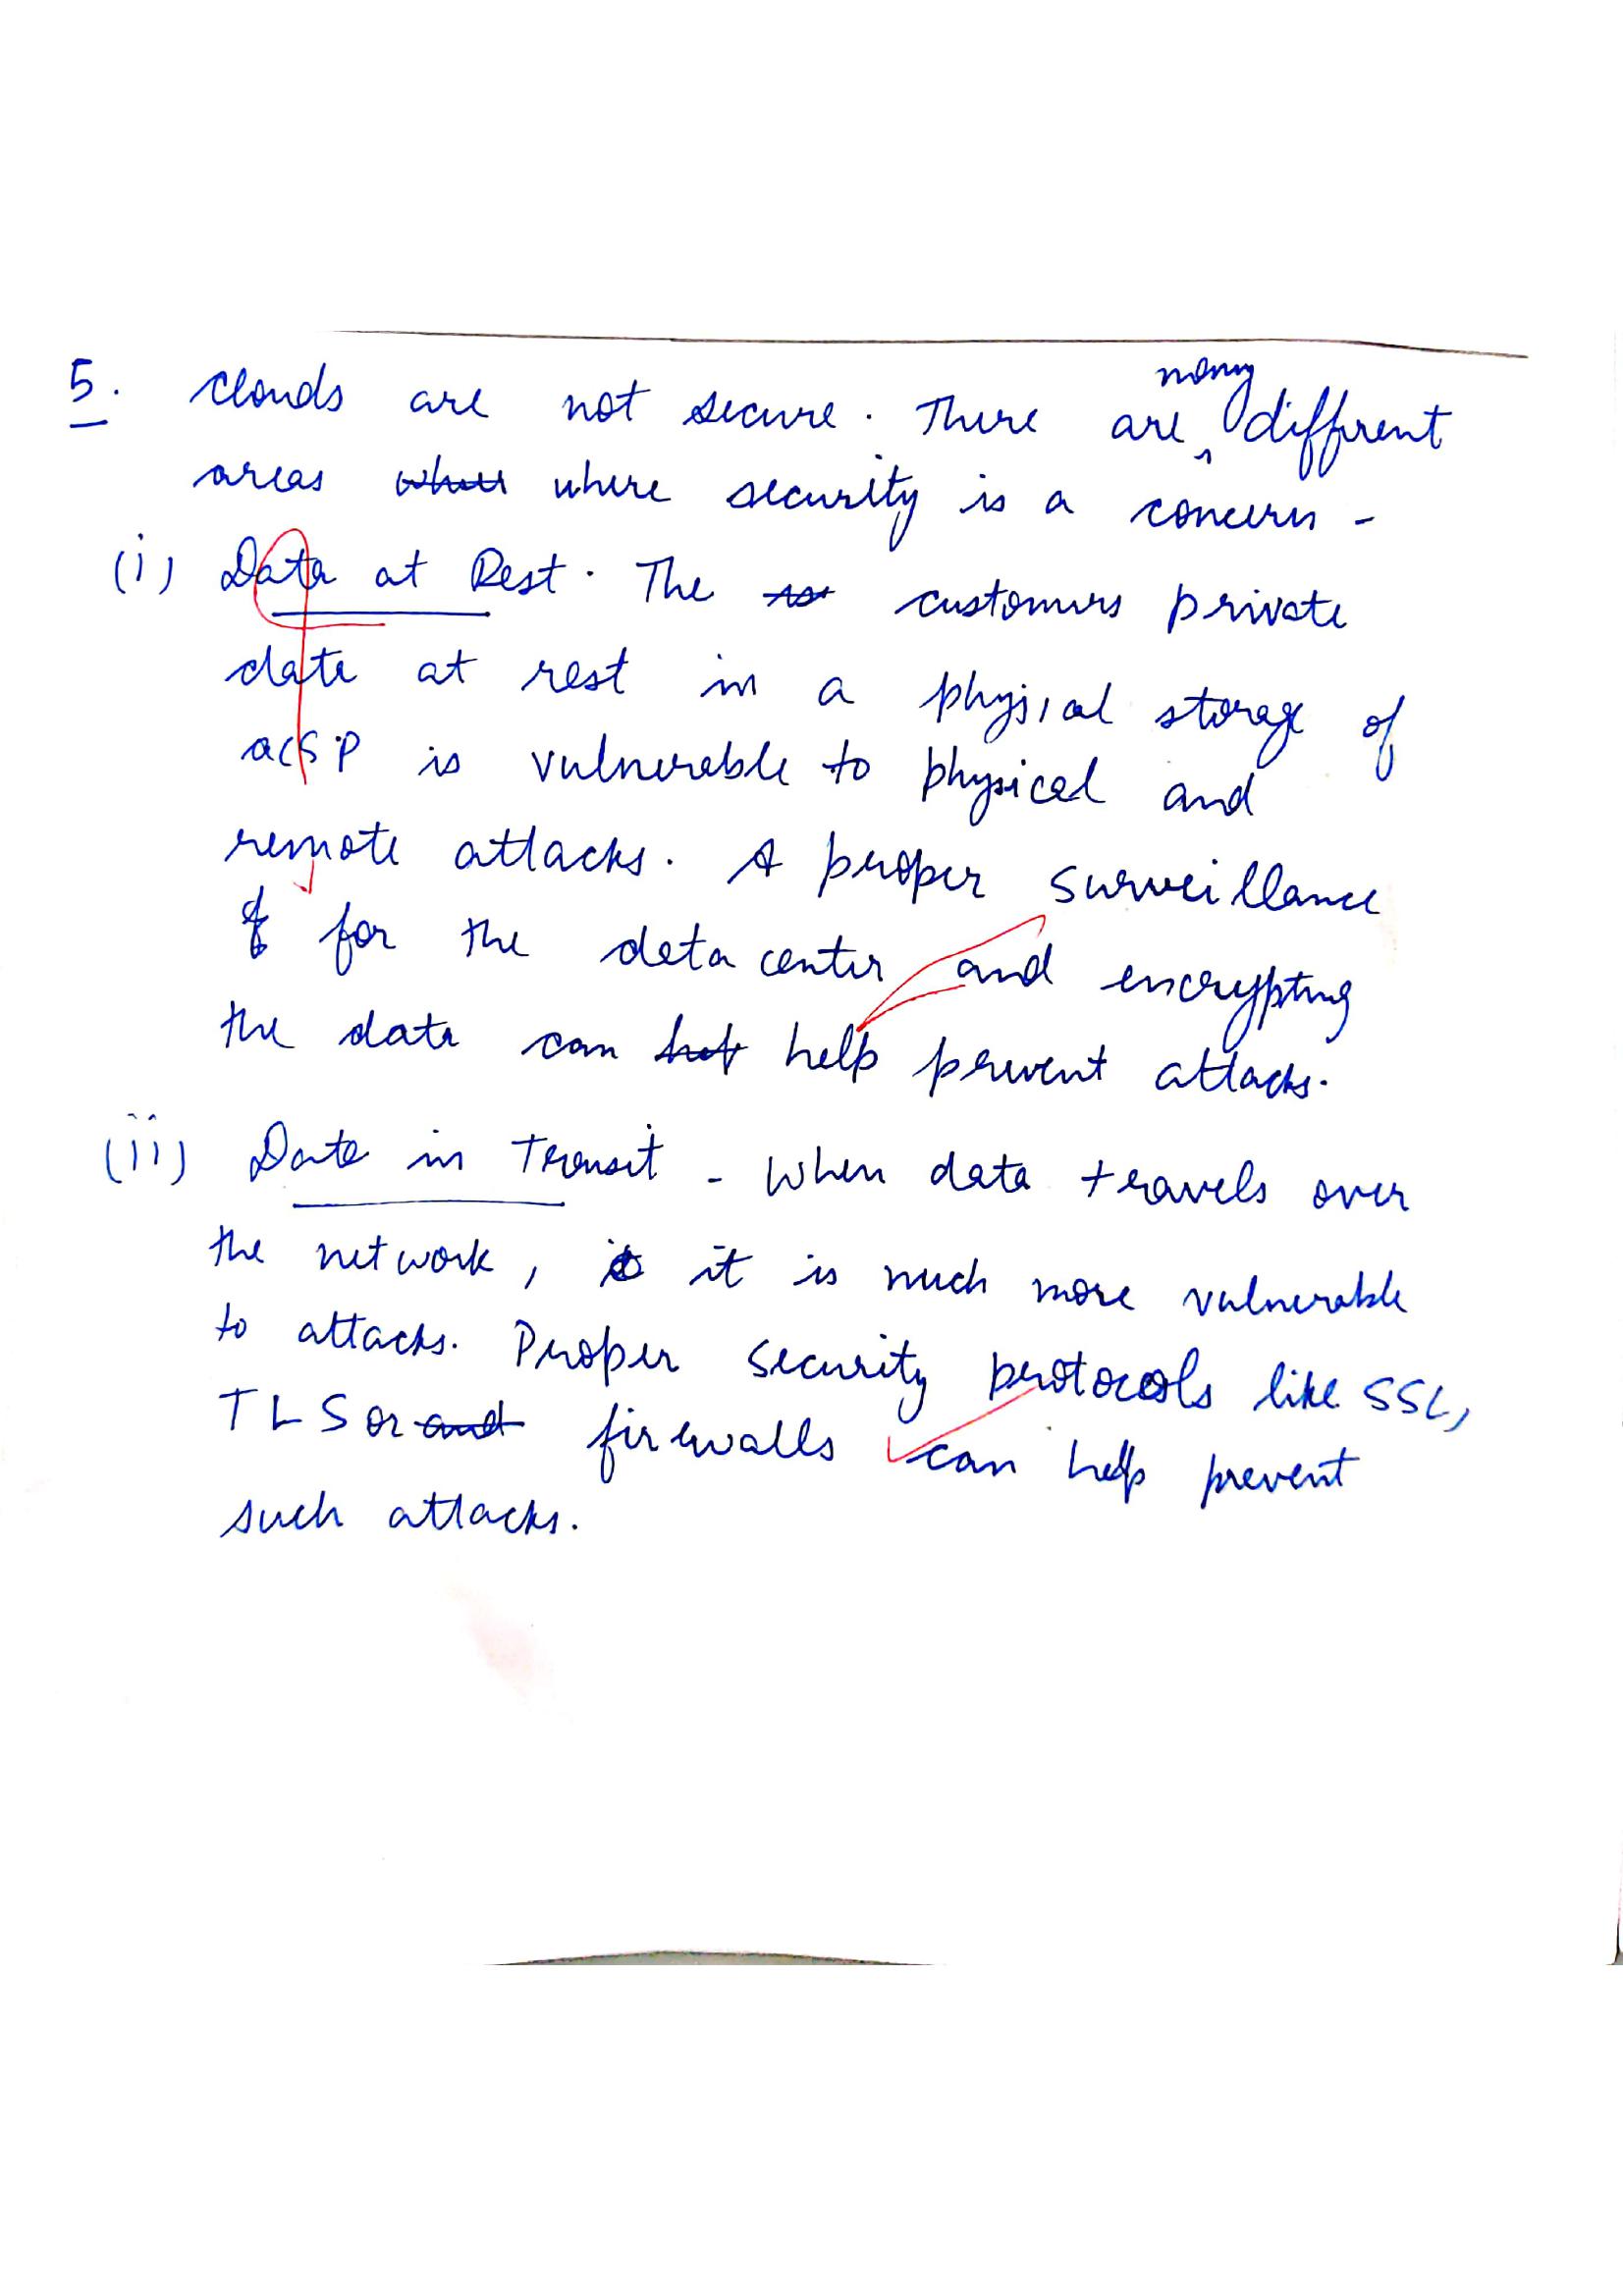 5. Clouds are not secure. There are many different
areas where security is a concern -
(i) Data at Rest. The customers private
data at rest in a physial storage of
a CSP is vulnerable to physical and
remote attacks. A proper surveillance
for the data center and encrypting
the data can help prevent attacks.
(ii) Data in Transit - When data travels over
the network, it is much more vulnerable
to attacks. Proper security protocols like SSL,
TLS or firewalls can help prevent
such attacks.